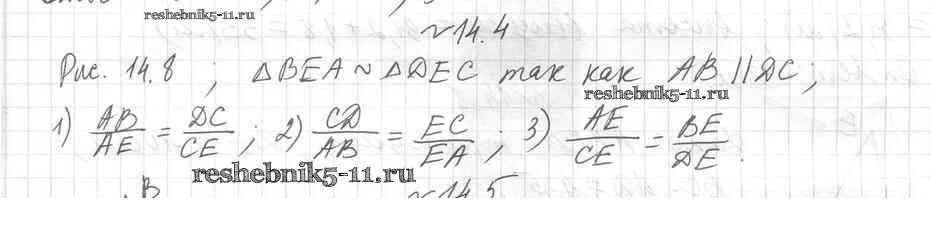 reshebnik5-11.ru
~14.4
Рис. 14.8 ; △BEA ~ △DEC так как AB || DC ;
reshebnik5-11.ru
1) AB/AE = DC/CE ; 2) CD/AB = EC/EA ; 3) AE/CE = BE/DE .
reshebnik5-11.ru
B ~14.5